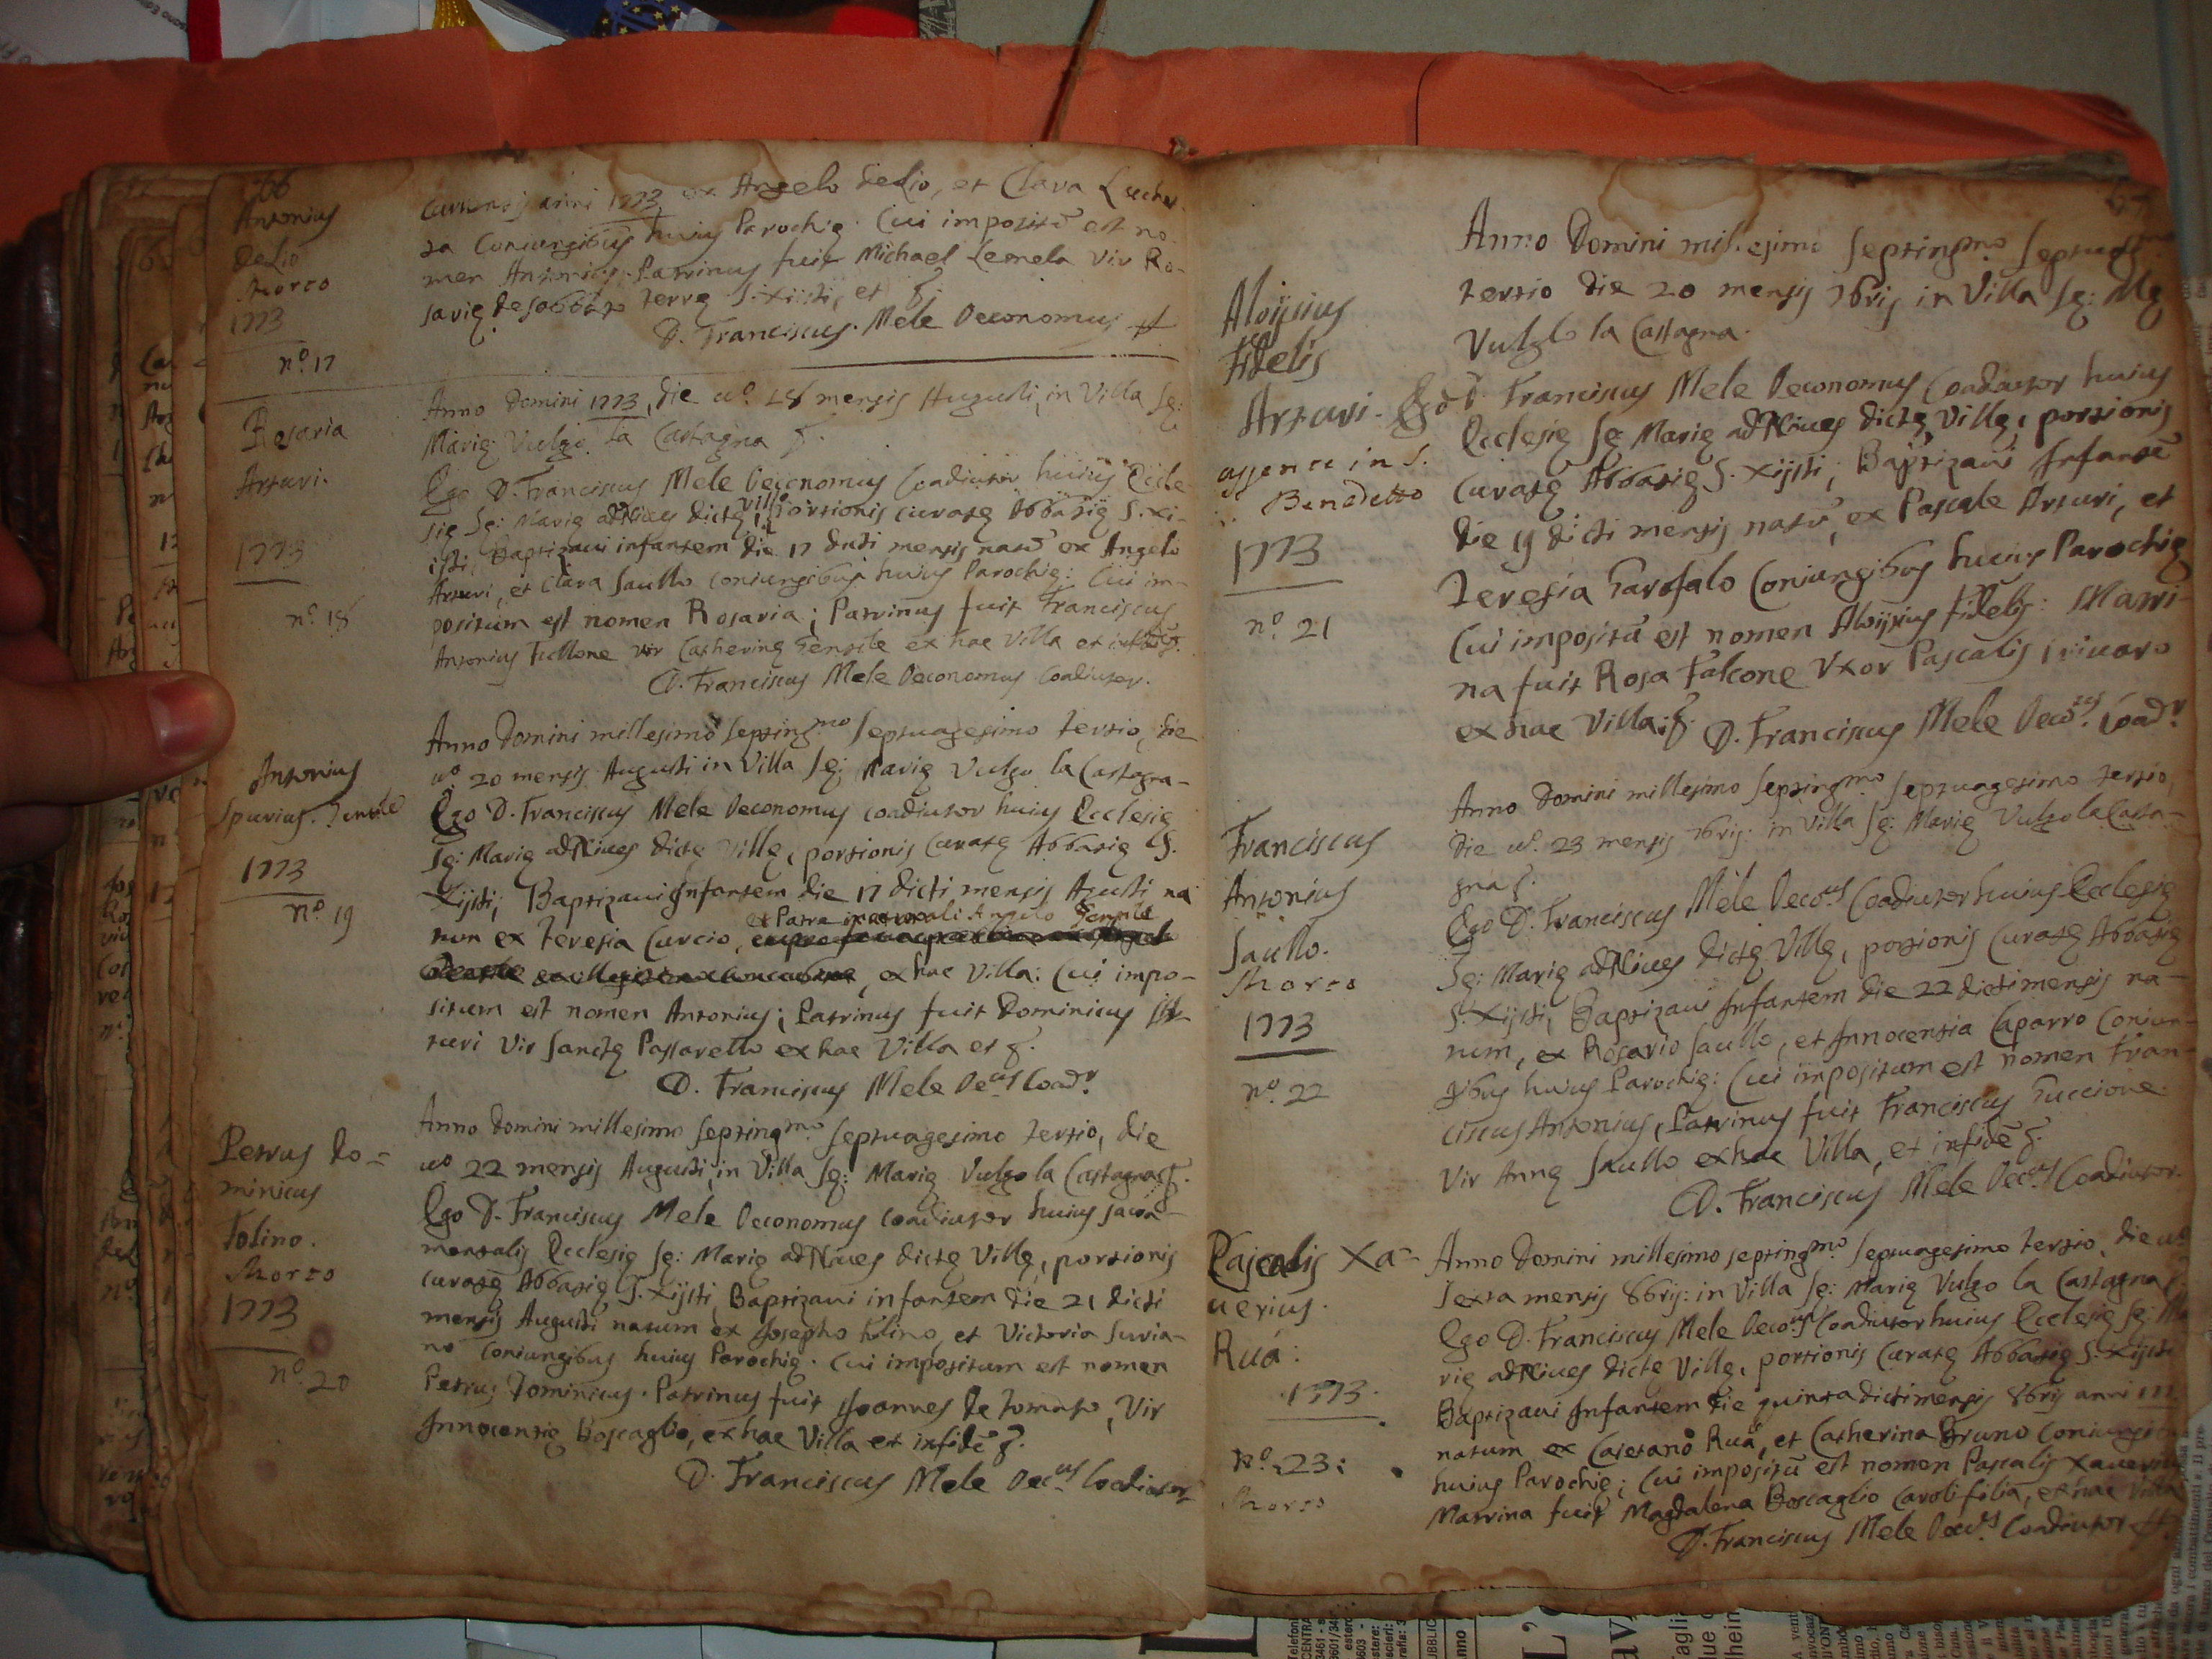 66
Antonius
deLio
Morto
1773
nº 17
currentis anni 1773 ex Angelo deLio, et Clara Lucher
ta Coniungibus huius Parochię. Cui impositū est no
men Antonius. Patrinus fuit Michael Leonela Vir Ro-
sarię terrę S. Xisti, et
D. Franciscus Mele Oeconomus
Rosaria
Arturi.
1773
nº 18
Anno Domini 1773, die uº 18 mensis Augusti, in Villa Sę:
Marię Vulgo la Castagna
Ego D. Franciscus Mele Oeconomus Coadiutor huius Eccle-
się Sę: Marię adNives dictę villę, portionis curatę Abbatię S. Xi-
isti, Baptizavi infantem die 17 dicti mensis natū ex Angelo
Arturi, et Clara Saullo coniungibus huius Parochię: Cui im-
positum est nomen Rosaria; Patrinus fuit Franciscus
Antonius Fullone vir Catherinę Gentile ex hac Villa et
D. Franciscus Mele Oeconomus Coadiutor.
Antonius
Spurius. Gentile
1773
nº 19
Anno Domini millesimo Septingmo Septuagesimo tertio, die
uº 20 mensis Augusti in Villa Sę: Marię Vulgo la Castagna-
Ego D. Franciscus Mele Oeconomus coadiutor huius Ecclesię
Sę: Marię adNives dictę Villę, portionis Curatę Abbatię S.
Xijsti, Baptizavi Infantem die 17 dicti mensis Agusti na
ex Patre naturali Angelo Gentile
num ex Teresia Curcio,
, ex hac Villa: Cui impo-
situm est nomen Antonius; Patrinus fuit Dominicus Ar-
turi Vir Sanctę Passarello ex hac Villa et
D. Franciscus Mele Oecus Coadr
Petrus Do=
minicus
Folino.
Morto
1773
nº 20
Anno Domini millesimo Septingmo Septuagesimo tertio, die
uº 22 mensis Augusti, in Villa Sę: Marię Vulgo la Castagna
Ego D. Franciscus Mele Oeconomus coadiutor huius sacra-
mentalis Ecclesię Sę: Marię adNives dictę Villę, portionis
curatę Abbatię S. Xijsti, Baptizavi infantem die 21 dicti
mensis Augusti natum ex Josepho Folino, et Victoria Suria-
no Coniungibus huius Parochię. Cui impositum est nomen
Petrus Dominicus. Patrinus fuit Joannes de Tomaso, Vir
Innocentię Boscaglio, ex hac Villa et infidē
D. Franciscus Mele Oecus Coadiutor
67
Aloijsius
Fidelis
Arturi-
assente in S.
Benedetto
1773
nº 21
Anno Domini millesimo Septingmo Septuagmo
tertio die 20 mensis 7bris in Villa Sę: Mę
Vulglo la Castagna.
Ego D. Franciscus Mele Oeconomus Coadiutor huius
Ecclesię Sę: Marię adNives dictę Villę, portionis
Curatę Abbatię S. Xijsti, Baptizavi Infantē
die 19 dicti mensis natū, ex Pascale Arturi, et
Teresia Garofalo Coniungibus huius Parochię
Cui impositū est nomen Aloijsius Fidelis: Matri-
na fuit Rosa Falcone Uxor Pascalis Vivaro
ex hac Villa, D. Franciscus Mele Oecous Coadr
Franciscus
Antonius
Saullo.
Morto
1773
nº 22
Anno Domini millesimo Septingmo Septuagesimo tertio,
die uº 23 mensis 7bris: in Villa Sę: Marię Vulgo la Casta-
gna
Ego D. Franciscus Mele Oecous Coadiutor huius Ecclesię
Sę: Marię adNives dictę Villę, portionis Curatę Abbatię
S. Xijsti, Baptizavi Infantem die 22 dicti mensis na-
num, ex Rosario Saullo, et Innocentia Caparro Coniun-
gibus huius Parochię: Cui impositum est nomen Fran-
ciscus Antonius, Patrinus fuit Franciscus Guccione
Vir Annę Saullo ex hac Villa, et infidē
D. Franciscus Mele Oecus Coadiutor.
Pascalis Xa-
uerius.
Ruá:
1773.
Nº. 23:
Morto
Anno Domini millesimo septingmo Septuagesimo tertio, die uº
sexta mensis 8bris: in Villa Sę: Marię Vulgo la Castagna
Ego D. Franciscus Mele Oecous Coadiutor huius Ecclesię Sę: Ma
rię adNives dictę Villę, portionis Curatę Abbatię S. Xijsti
Baptizavi Infantem die quinta dicti mensis 8bris anni 177
natum ex Caietano Ruá, et Catherina Bruno Coniungibus
huius Parochię; Cui impositū est nomen Pascalis Xaverius
Matrina fuit Magdalena Boscaglio Caroli filia, ex hac Villa
D. Franciscus Mele Oecous Coadiutor